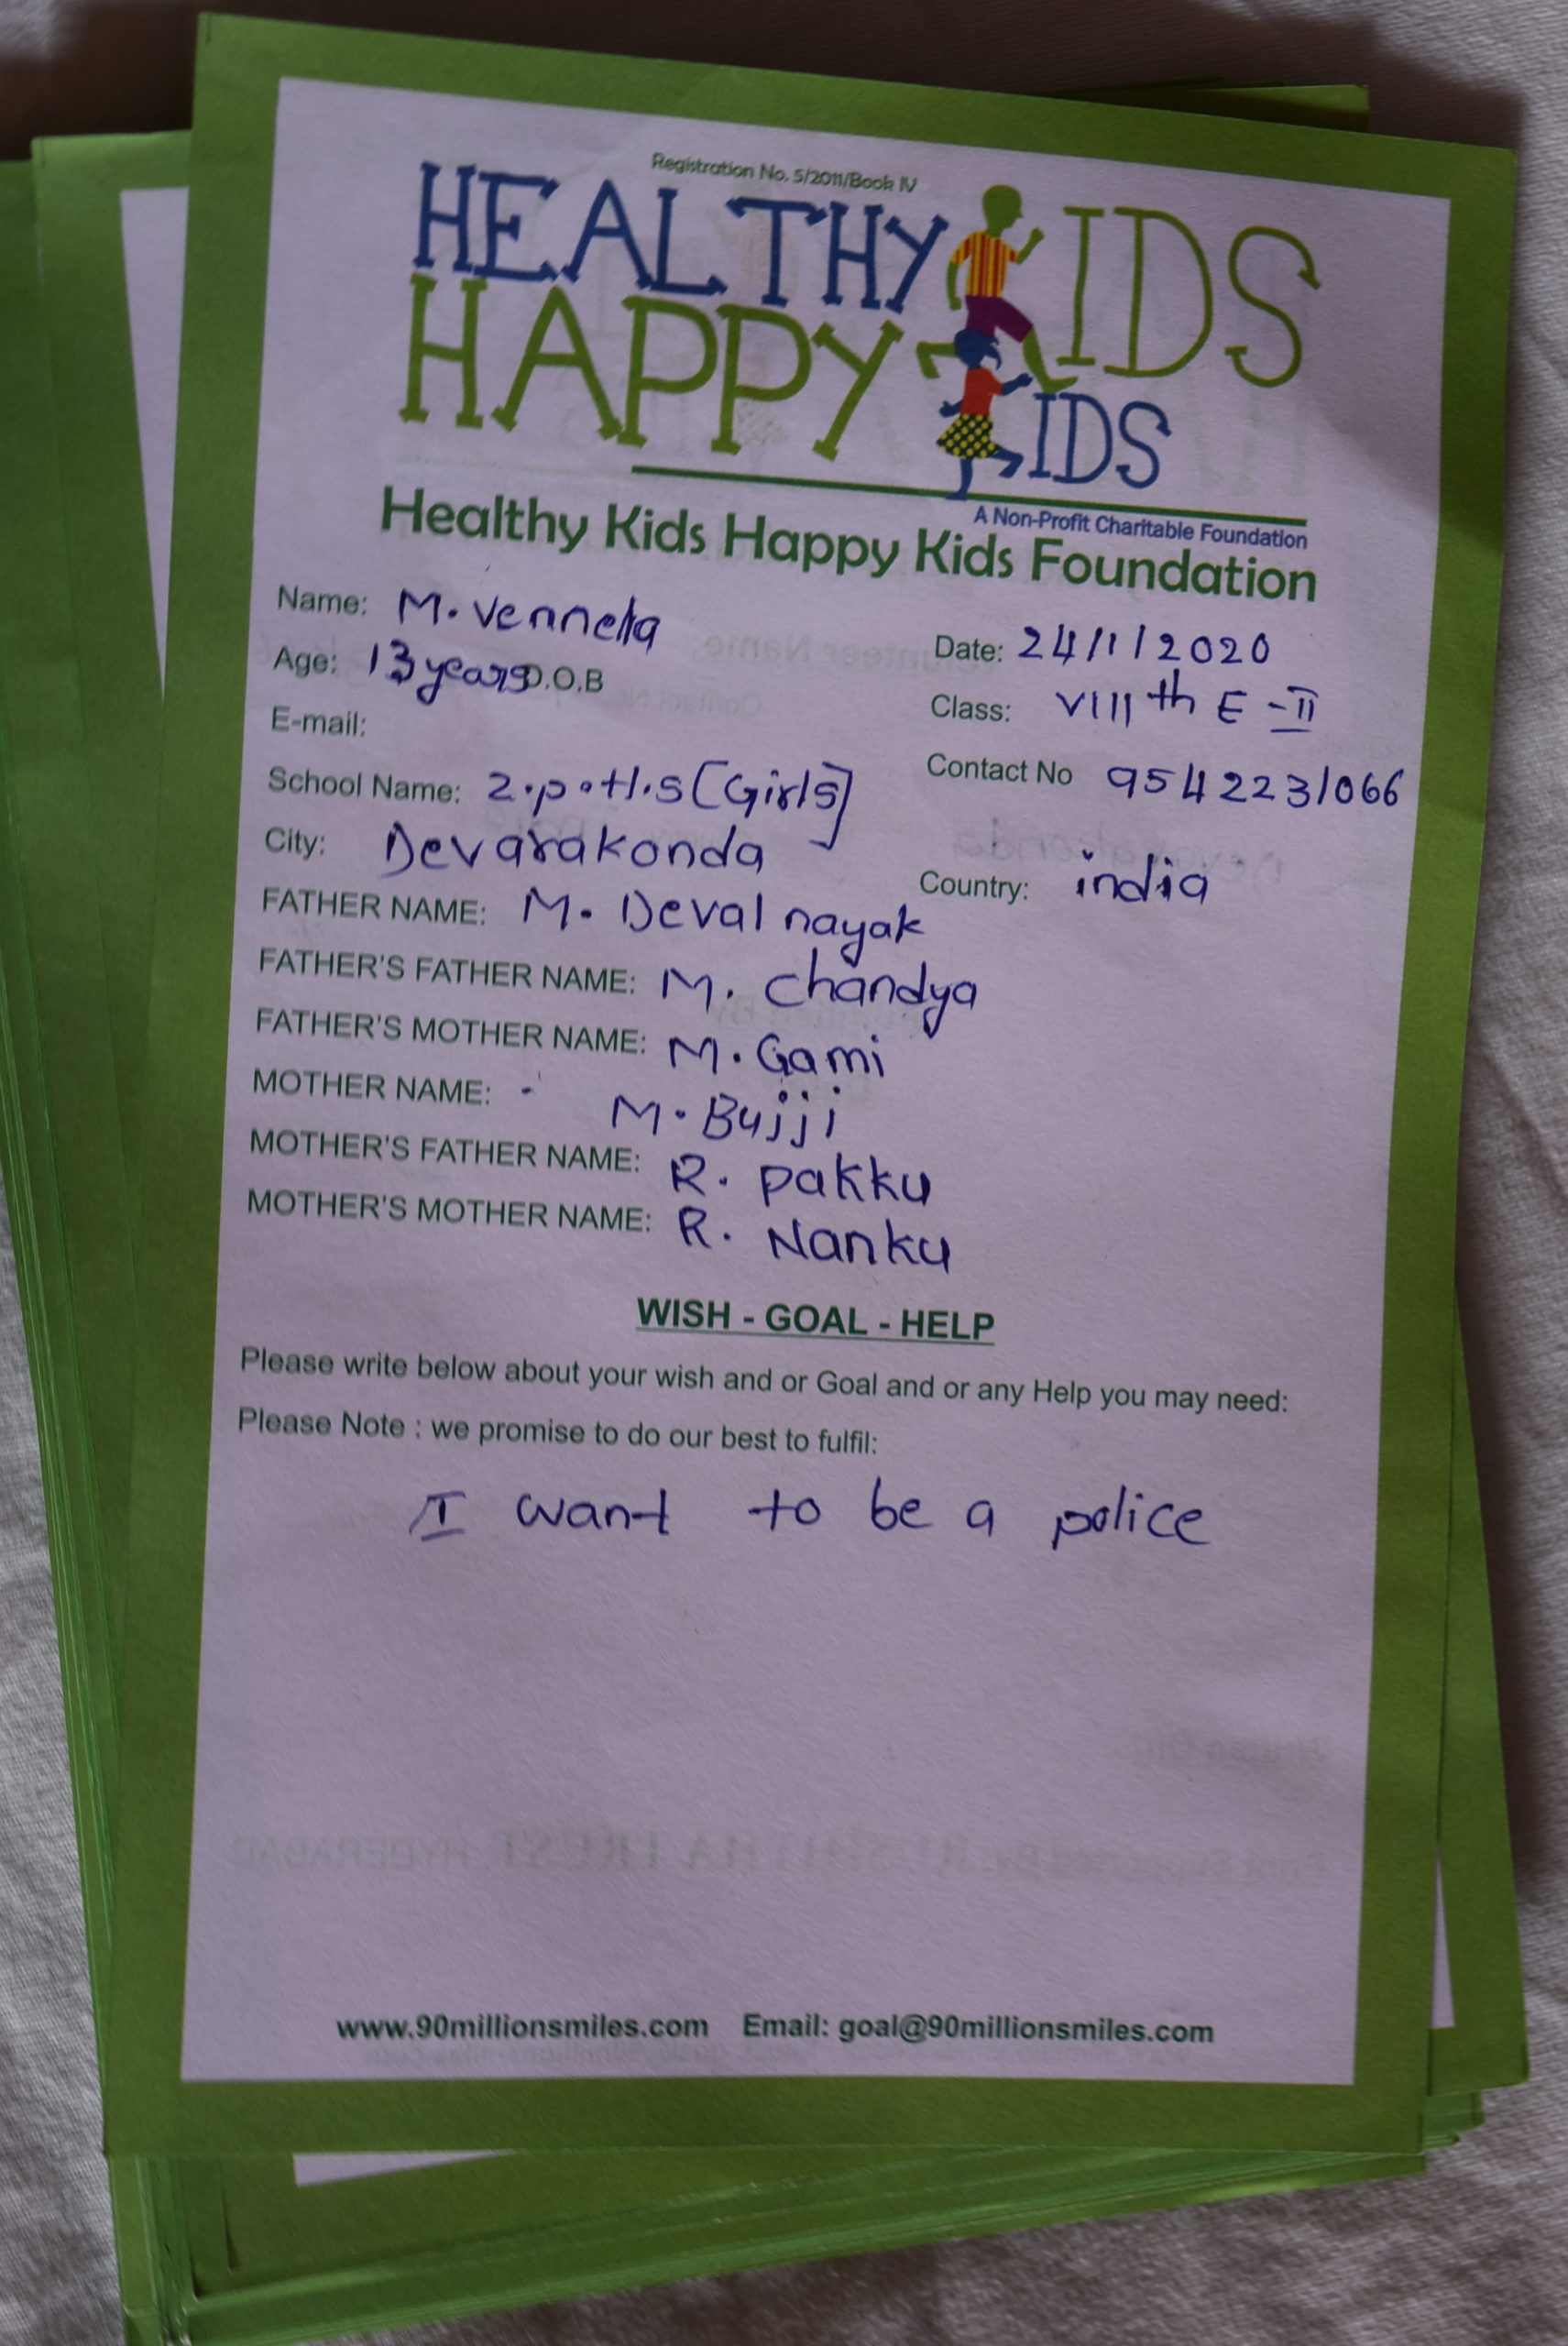 Registration No. 5/2011/Book IV
HEALTHY KIDS
HAPPY KIDS
A Non-Profit Charitable Foundation
Healthy Kids Happy Kids Foundation
Name: M. Vennela Date: 24/1/2020
Age: 13 years D.O.B Class: VIIIth E - II
E-mail: Contact No 9542231066
School Name: Z.p.H.S [Girls]
City: Devarakonda Country: india
FATHER NAME: M. Deval nayak
FATHER'S FATHER NAME: M. chandya
FATHER'S MOTHER NAME: M. Gami
MOTHER NAME: M. Bujji
MOTHER'S FATHER NAME: R. pakku
MOTHER'S MOTHER NAME: R. Nanku
WISH - GOAL - HELP
Please write below about your wish and or Goal and or any Help you may need:
Please Note : we promise to do our best to fulfil:
I want to be a police
www.90millionsmiles.com Email: goal@90millionsmiles.com